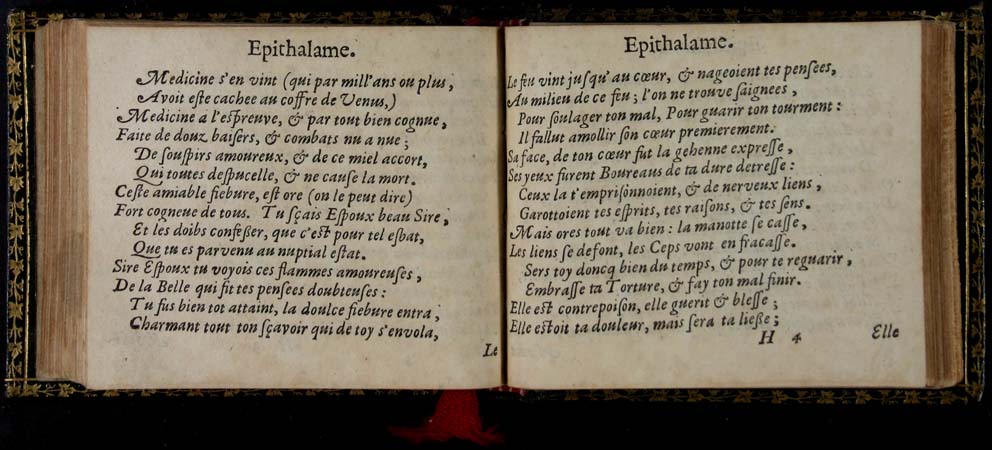 Epithalame.
Medicine s'en vint (qui par mill'ans ou plus,
Avoit este cachee au coffre de Venus,)
Medicine a l'espreuve, & par tout bien cognue,
Faite de douz baisers, & combats nu a nue;
De souspirs amoureux, & de ce miel accort,
Qui toutes despucelle, & ne cause la mort.
Ceste amiable fiebure, est ore (on le peut dire)
Fort cogneue de tous. Tu sçais Espoux beau Sire,
Et les doibs confeßer, que c'est pour tel esbat,
Que tu es parvenu au nuptial estat.
Sire Espoux tu voyois ces flammes amoureuses,
De la Belle qui fit tes pensees doubteuses:
Tu fus bien tot attaint, la doulce fiebure entra,
Charmant tout ton sçavoir qui de toy s'envola,
Le
Epithalame.
Le feu vint jusqu'au cœur, & nageoient tes pensees,
Au milieu de ce feu; l'on ne trouve saignees,
Pour soulager ton mal, Pour guarir ton tourment:
Il fallut amollir son cœur premierement.
Sa face, de ton cœur fut la gehenne expresse,
Ses yeux furent Boureaus de ta dure detresse:
Ceux la t'emprisonnoient, & de nerveux liens,
Garottoient tes esprits, tes raisons, & tes sens.
Mais ores tout va bien: la manotte se casse,
Les liens se defont, les Ceps vont en fracasse.
Sers toy doncq bien du temps, & pour te reguarir,
Embrasse ta Torture, & fay ton mal finir.
Elle est contrepoison, elle guerit & blesse;
Elle estoit ta douleur, mais sera ta ließe;
H 4
Elle